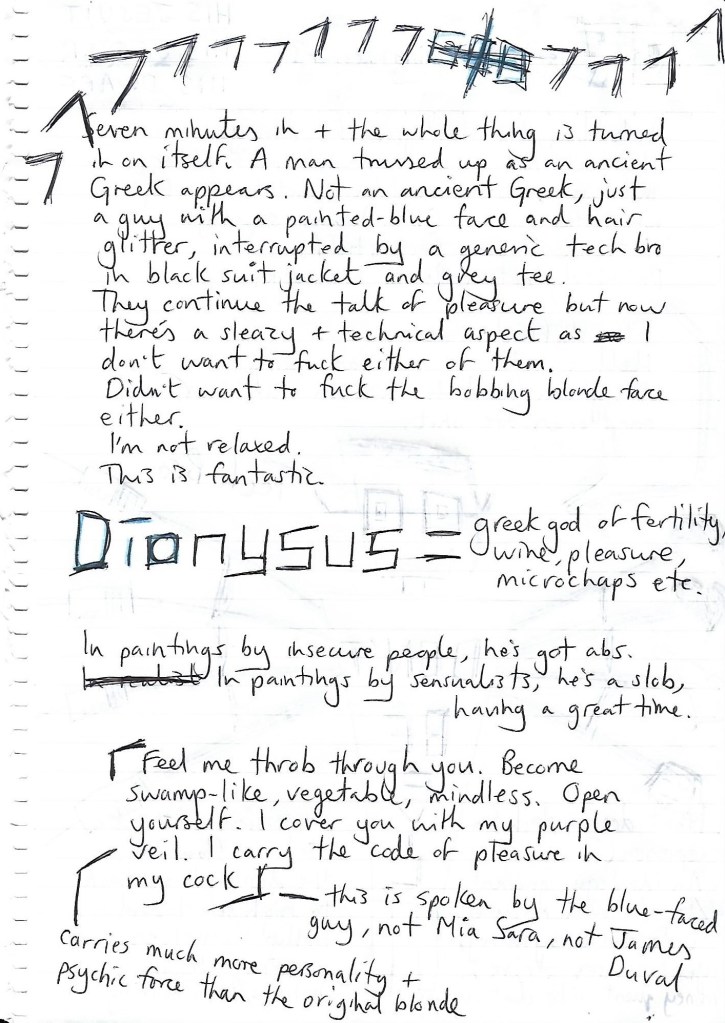 7 7 7 7 1 7 7 7 7 1 1
1
7
Seven minutes in + the whole thing is turned
in on itself. A man trussed up as an ancient
Greek appears. Not an ancient Greek, just
a guy with a painted-blue face and hair
glitter, interrupted by a generic tech bro
in black suit jacket and grey tee.
They continue the talk of pleasure but now
there's a sleazy + technical aspect as I
don't want to fuck either of them.
Didn't want to fuck the bobbing blonde face
either.
I'm not relaxed.
This is fantastic.
Dionysus = greek god of fertility,
wine, pleasure,
microchaps etc.
In paintings by insecure people, he's got abs.
In paintings by sensualists, he's a slob,
having a great time.
Feel me throb through you. Become
swamp-like, vegetable, mindless. Open
yourself. I cover you with my purple
veil. I carry the code of pleasure in
my cock
this is spoken by the blue-faced
guy, not Mia Sara, not James
Duval
carries much more personality +
psychic force than the original blonde